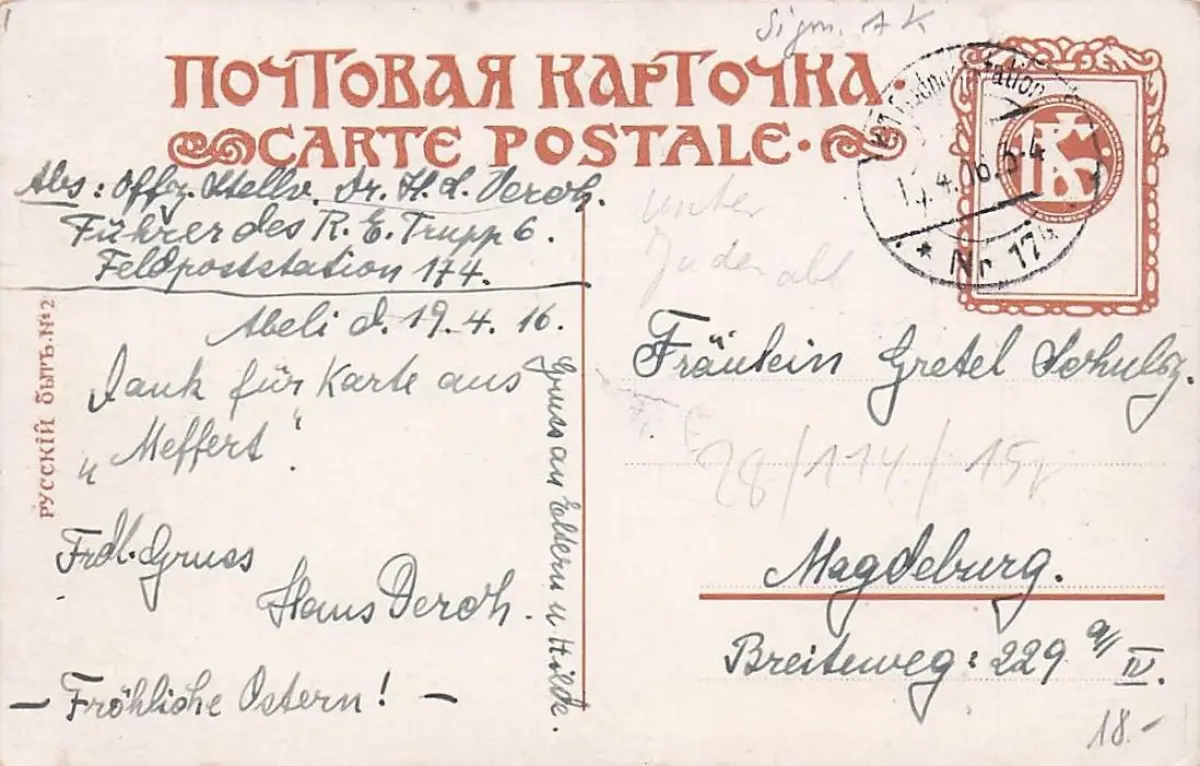 Sign. AK
ПОЧТОВАЯ КАРТОЧКА.
CARTE POSTALE.
Abs: Offz. Stellv. Dr. H. L. Derch.
Führer des R. E. Trupp 6.
Feldpoststation 174.
Abeli d. 19.4.16.
Dank für Karte aus
„Meffert".
Frdl. Gruss
Hans Derch.
– Fröhliche Ostern! –
Gruss an Eltern u Hilde.
РУССКІЙ БЫТЪ. №2
unter
Juden
Nr. 174
Fräulein Gretel Schulz.
28/114/15
Magdeburg.
Breiteweg: 229 a/IV.
18.-